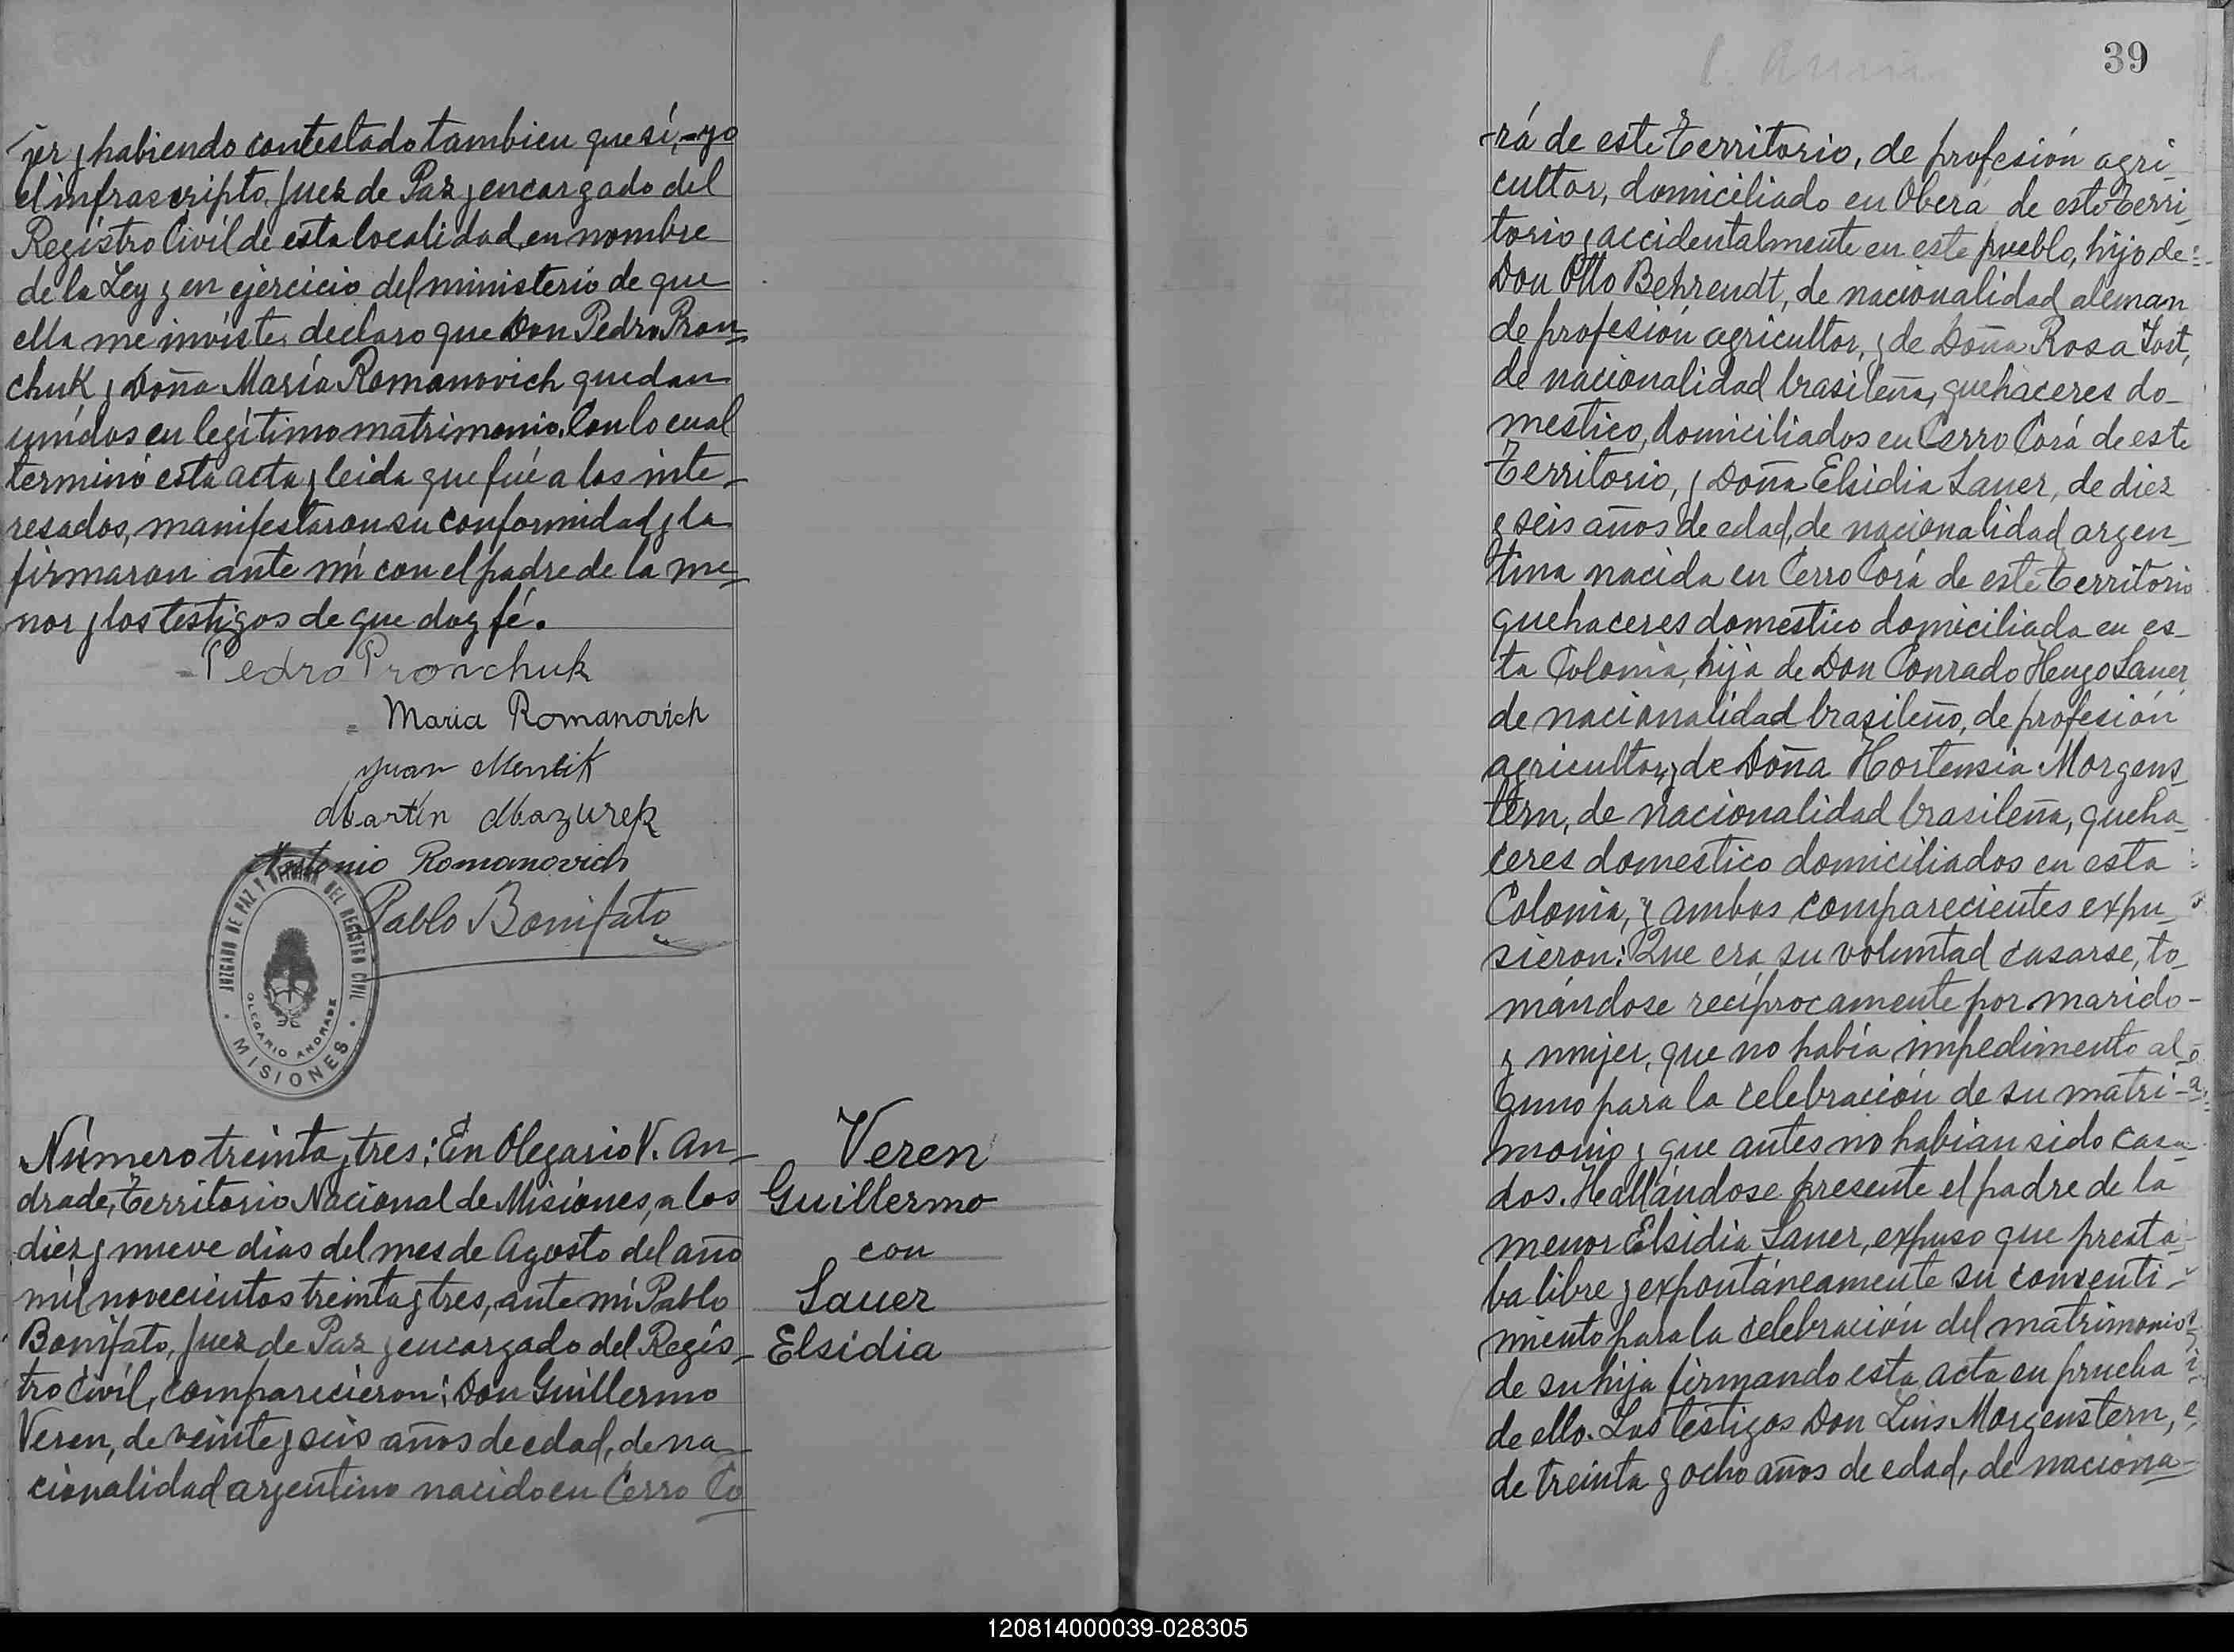 jer, y habiendo contestado tambien que sí,-yo
el infrascripto, Juez de Paz y encargado del
Registro Civil de esta localidad, en nombre
de la Ley y en ejercicio del ministerio de que
ella me inviste, declaro que Don Pedro Pron-
chuk y Doña María Romanovich quedan
unidos en legítimo matrimonio. Con lo cual
terminó esta acta y leida que fué a los inte-
resados, manifestaron su conformidad y la
firmaron ante mí con el padre de la me-
nor y los testigos de que doy fé.
Pedro Pronchuk
Maria Romanovich
Juan
Martin Mazurek
Antonio Romanovich
Pablo Bonifato
JUZGADO DE PAZ Y OFICINA DEL REGISTRO CIVIL
OLEGARIO ANDRADE
· MISIONES ·
Número treinta y tres: En Olegario V. An-
drade, Territorio Nacional de Misiones, a los
diez y nueve dias del mes de Agosto del año
mil novecientos treinta y tres, ante mí Pablo
Bonifato, Juez de Paz y encargado del Regis-
tro Civil, comparecieron: Don Guillermo
Veren, de veinte y seis años de edad, de na-
cionalidad argentino nacido en Cerro Co
Veren
Guillermo
con
Sauer
Elsidia
39
-rá de este territorio, de profesión agri-
cultor, domiciliado en Oberá de este terri-
torio y accidentalmente en este pueblo, hijo de
Don Otto Behrendt, de nacionalidad aleman
de profesión agricultor, y de Doña Rosa Jost,
de nacionalidad brasileña, quehaceres do-
mestico, domiciliados en Cerro Corá de este
territorio, y Doña Elsidia Sauer, de diez
y seis años de edad, de nacionalidad argen-
tina nacida en Cerro Corá de este territorio
quehaceres domestico domiciliada en es-
ta Colonia, hija de Don Conrado Hugo Sauer
de nacionalidad brasileño, de profesión
agricultor, y de Doña Hortensia Morgens-
tern, de nacionalidad brasileña, queha-
ceres domestico domiciliados en esta
Colonia, y ambos comparecientes expu-
sieron: Que era su voluntad casarse, to-
mándose recíprocamente por marido-
y mujer, que no había impedimento al-
guno para la celebración de su matri-
monio y que antes no habían sido casa-
dos. Hallándose presente el padre de la
menor Elsidia Sauer, expuso que presta-
ba libre y expontáneamente su consenti-
miento para la celebración del matrimonio
de su hija firmando esta acta en prueba
de ello. Los testigos Don Luis Morgenstern,
de treinta y ocho años de edad, de naciona-
120814000039-028305